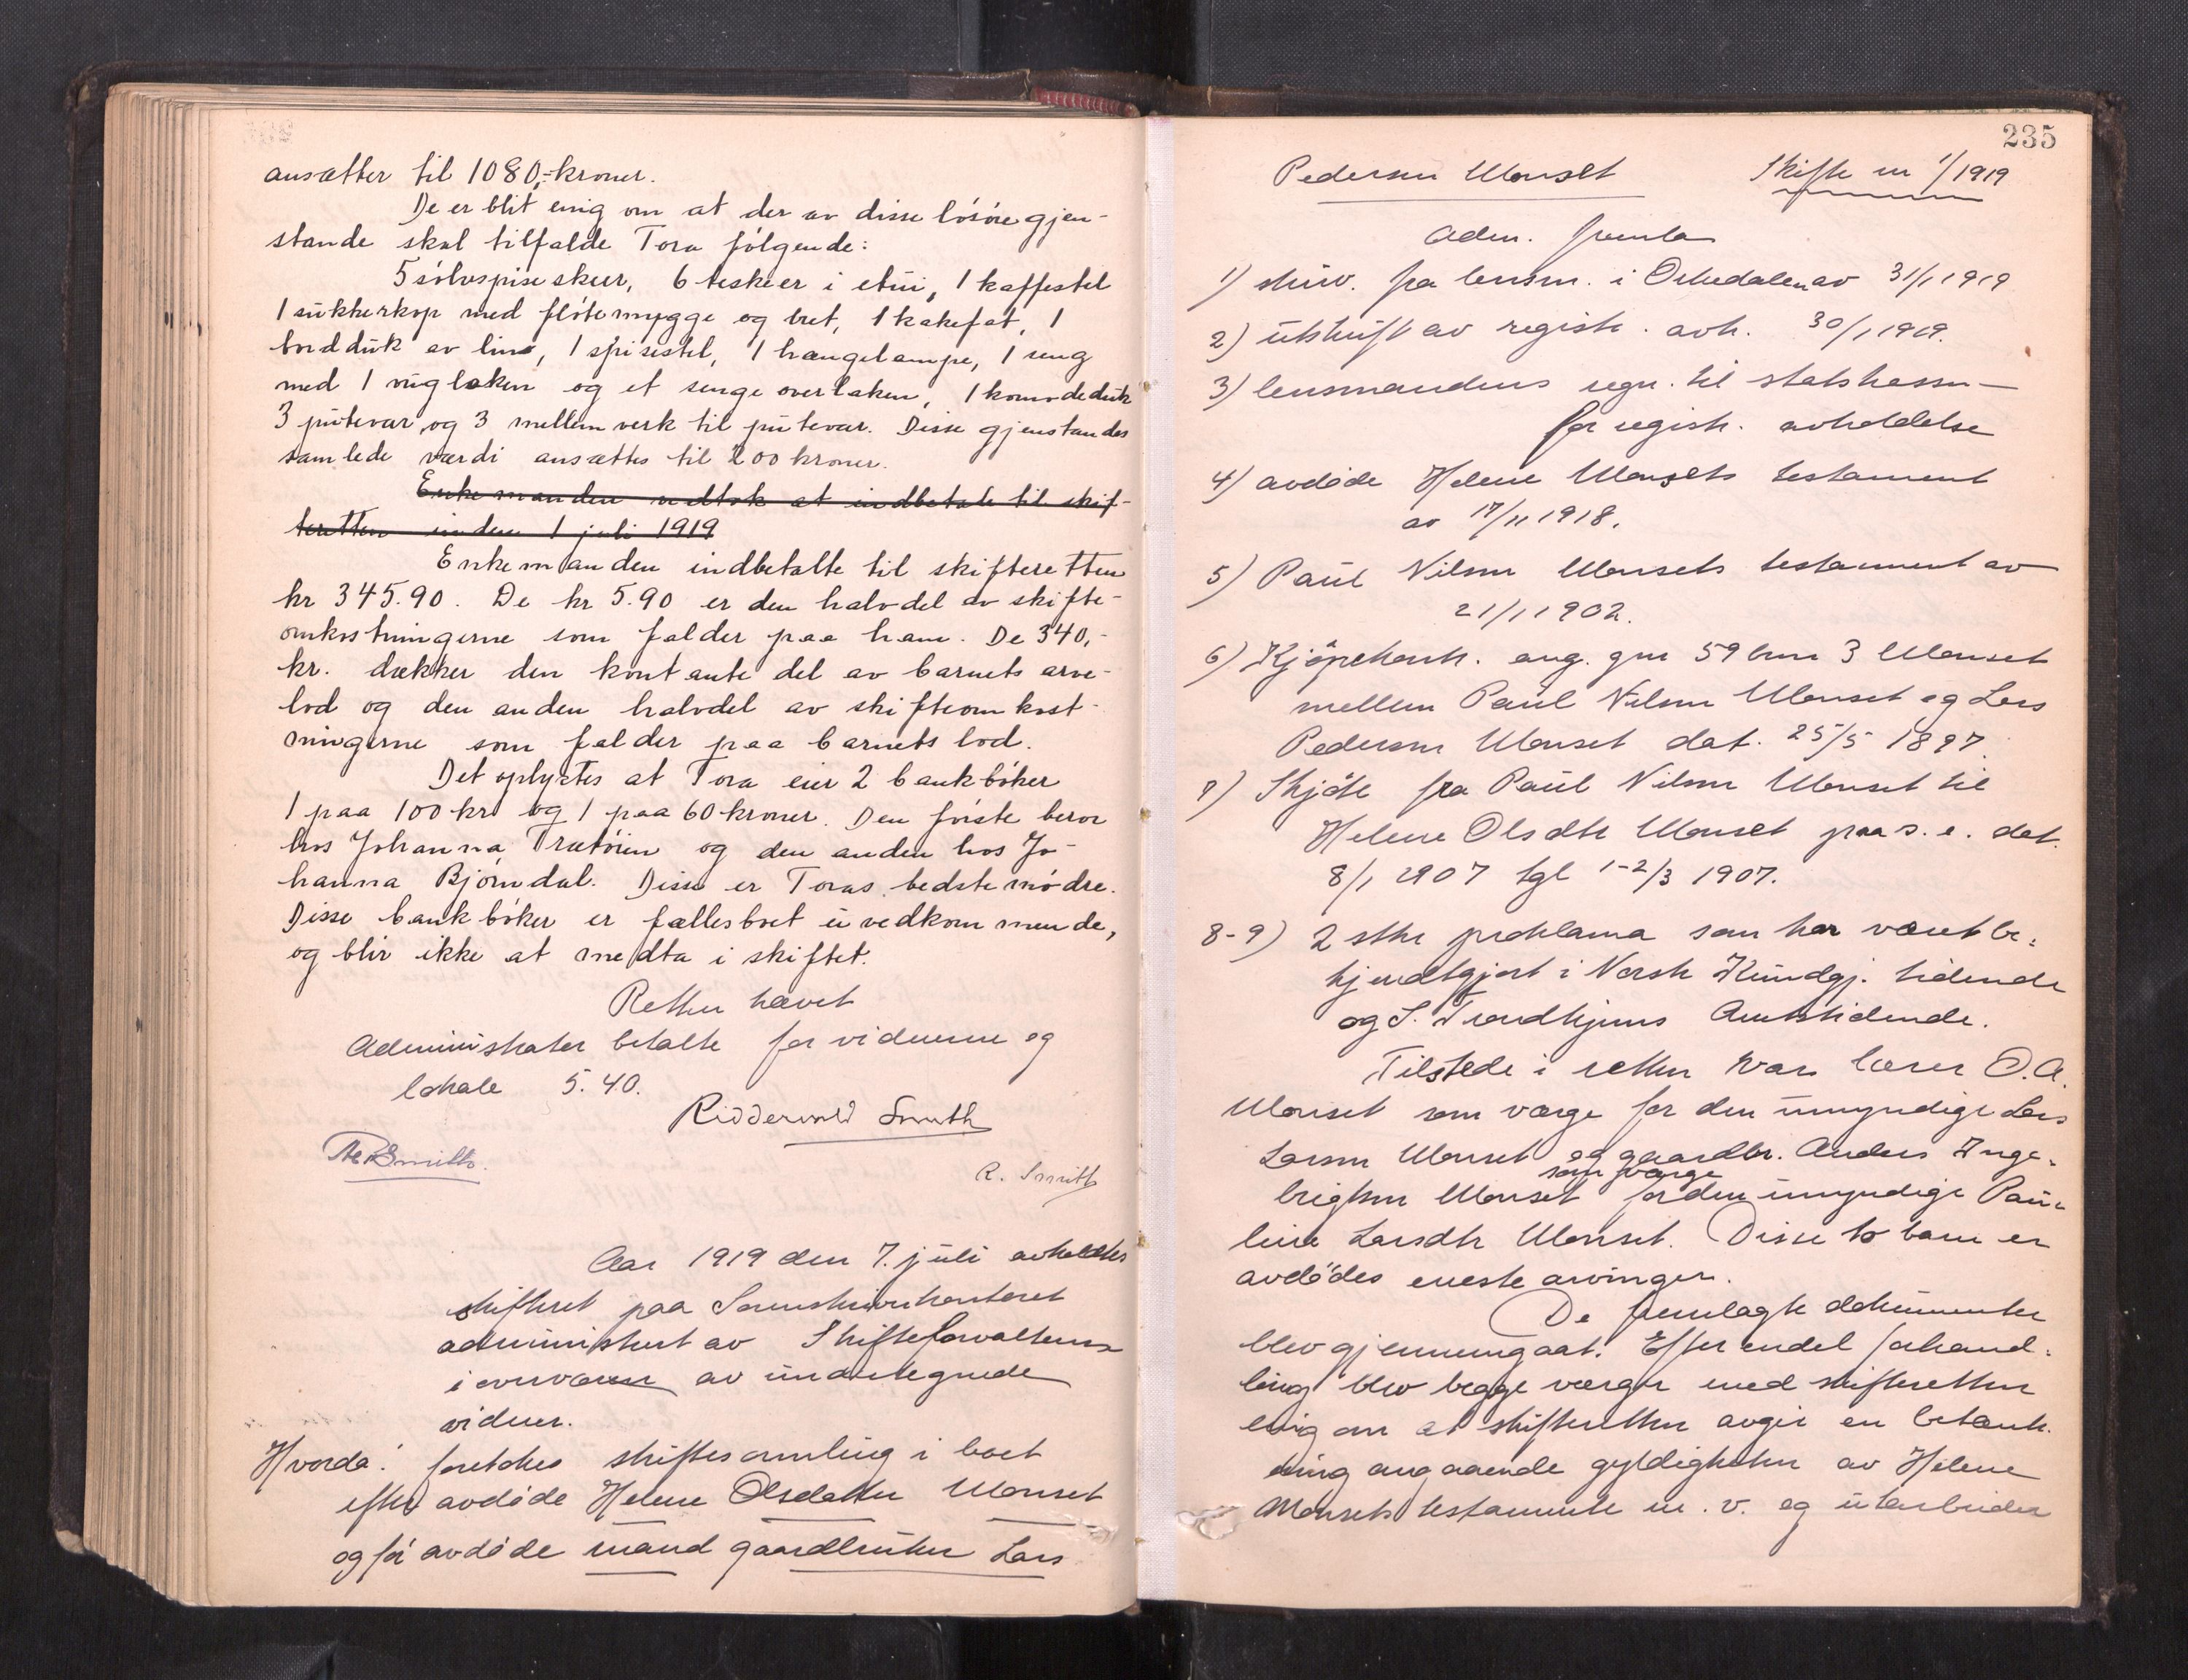 ansætter til 1080,-kroner.
De er blit enig om at der av disse løsøregjen-
stande skal tilfalde Tora følgende:
5 sølvspiseskeer, 6 teskeer i etui, 1 kaffestel
1 sukkerkop med fløtemugge og bret, 1 kakefat, 1
bordduk av lin, 1 spisestel, 1 hængelampe, 1 seng
med 1 ruglaken og et senge overlaken, 1 komodeduk
3 putevar og 3 mellemverk til putevar. Disse gjenstandes
samlede værdi ansættes til 200 kroner.
Enkemanden vedtok at indbetale til skif-
teretten inden 1 juli 1919
Enkemanden indbetalte til skifteretten
kr 345.90. De kr 5.90 er den halvdel av skifte-
omkostningerne som falder paa ham. De 340,-
kr. dækker den kontante del av barnets arve-
lod og den anden halvdel av skifteomkost-
ningerne som falder paa barnets lod.
Det oplystes at Tora eier 2 bankbøker
1 paa 100 kr og 1 paa 60 kroner. Den første beror
hos Johanna Trætøien og den anden hos Jo-
hanna Bjørndal. Disse er Toras bedstemødre.
Disse bankbøker er fællesboet uvedkommende,
og blir ikke at medta i skiftet.
Retten hævet
Administrator betalte for vidnerne og
lokale 5.40.
Ridderwold Smith
R. Smith
Aar 1919 den 7. juli avholdtes
skifteret paa Sorenskriverkontoret
administrert av Skifteforvalteren
i overvær av undertegnede
vidner.
Hvorda: foretokes skiftesamling i boet
efter avdøde Helene Olsdatter Monset
og før avdøde mand gaardbruker Lars
235
Pedersen Monset Skifte nr 1/1919
Adm. fremla
1) skriv. fra lensm. i Orkedalen av 31/1 1919
2) utskrift av registr. avh. 30/1 1919.
3) lensmandens regn. til statskassen
for registr. avholdelse
4) avdøde Helene Monsets testament
av 17/11 1918.
5) Paul Nilsen Monsets testament av
21/1 1902.
6) Kjøpekontr. ang. gnr 59 bnr 3 Monset
mellem Paul Nilsen Monset og Lars
Pedersen Monset dat. 25/5 1897.
7) Skjøte fra Paul Nilsen Monset til
Helene Olsdtr Monset paa s. e. dat.
8/1 1907 tgl 1-2/3 1907.
8-9) 2 stkr proklama som har været be-
kjendtgjort i Norsk Kundgj. tidende
og S. Trondhjems Amtstidende.
Tilstede i retten var lærer O.A.
Monset som værge for den umyndige Lars
Larsen Monset og gaardbr. Anders Inge-
brigtsen Monset som værge for den umyndige Pau-
line Larsdtr Monset. Disse to barn er
avdødes eneste arvinger.
De fremlagte dokumenter
blev gjennemgaat. Efter endel forhand-
ling blev begge værger med skifteretten
enig om at skifteretten avgir en betænk-
ning angaaende gyldigheten av Helene
Monsets testamente m. v. og utarbeider